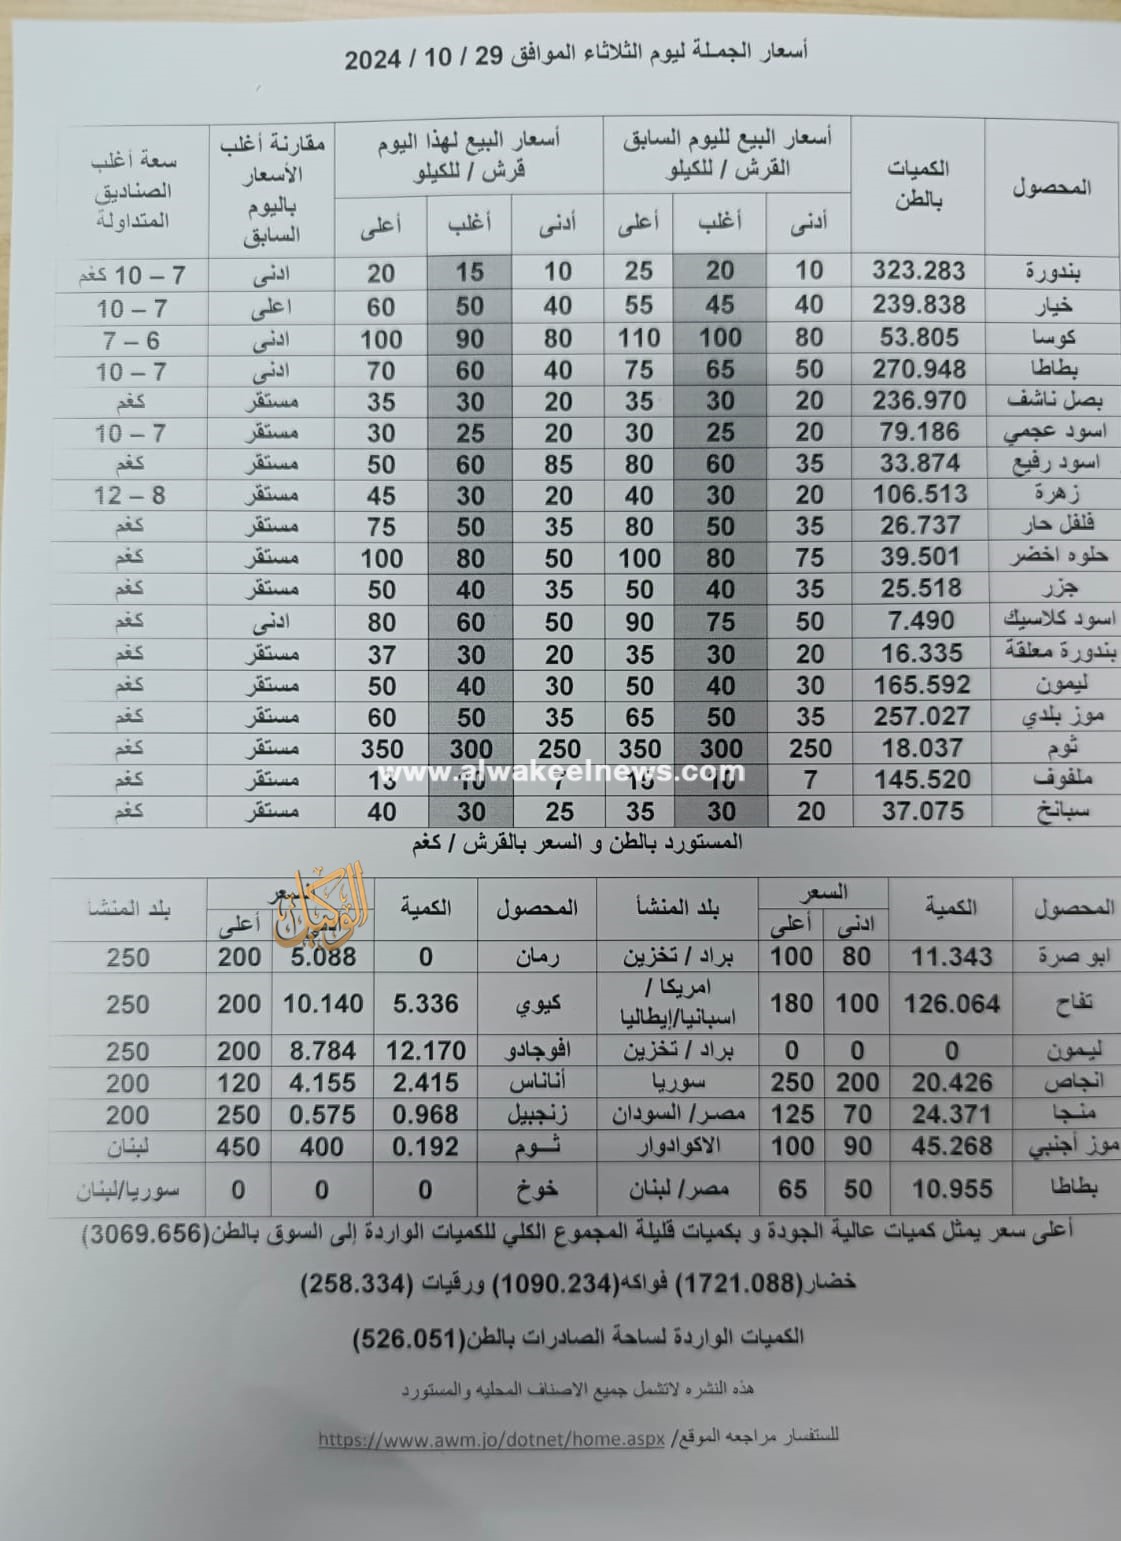 أسعار الجملة ليوم الثلاثاء الموافق 29 / 10 / 2024
المحصول الكميات بالطن أسعار البيع لليوم السابق القرش / للكيلو أسعار البيع لهذا اليوم قرش / للكيلو مقارنة أغلب الأسعار باليوم السابق سعة أغلب الصناديق المتداولة
أدنى أغلب أعلى أدنى أغلب أعلى
بندورة 323.283 10 20 25 10 15 20 ادنى 7 – 10 كغم
خيار 239.838 40 45 55 40 50 60 اعلى 7 – 10
كوسا 53.805 80 100 110 80 90 100 ادنى 6 – 7
بطاطا 270.948 50 65 75 40 60 70 ادنى 7 – 10
بصل ناشف 236.970 20 30 35 20 30 35 مستقر كغم
اسود عجمي 79.186 20 25 30 20 25 30 مستقر 7 – 10
اسود رفيع 33.874 35 60 80 85 60 50 مستقر كغم
زهرة 106.513 20 30 40 20 30 45 مستقر 8 – 12
فلفل حار 26.737 35 50 80 35 50 75 مستقر كغم
حلوه اخضر 39.501 75 80 100 50 80 100 مستقر كغم
جزر 25.518 35 40 50 35 40 50 مستقر كغم
اسود كلاسيك 7.490 50 75 90 50 60 80 ادنى كغم
بندورة معلقة 16.335 20 30 35 20 30 37 مستقر كغم
ليمون 165.592 30 40 50 30 40 50 مستقر كغم
موز بلدي 257.027 35 50 65 35 50 60 مستقر كغم
ثوم 18.037 250 300 350 250 300 350 مستقر كغم
www.alwakeelnews.com
ملفوف 145.520 7 10 15 7 10 13 مستقر كغم
سبانخ 37.075 20 30 35 25 30 40 مستقر كغم
المستورد بالطن و السعر بالقرش / كغم
المحصول الكمية السعر بلد المنشأ المحصول الكمية السعر بلد المنشأ
ادنى أعلى أعلى
الوكيل
ابو صرة 11.343 80 100 براد / تخزين رمان 0 5.088 200 250
تفاح 126.064 100 180 امريكا / اسبانيا/إيطاليا كيوي 5.336 10.140 200 250
ليمون 0 0 0 براد / تخزين افوجادو 12.170 8.784 200 250
انجاص 20.426 200 250 سوريا أناناس 2.415 4.155 120 200
منجا 24.371 70 125 مصر/ السودان زنجبيل 0.968 0.575 250 200
موز أجنبي 45.268 90 100 الاكوادوار ثـــوم 0.192 400 450 لبنان
بطاطا 10.955 50 65 مصر/ لبنان خوخ 0 0 0 سوريا/لبنان
أعلى سعر يمثل كميات عالية الجودة و بكميات قليلة المجموع الكلي للكميات الواردة إلى السوق بالطن(3069.656)
خضار(1721.088) فواكه(1090.234) ورقيات (258.334)
الكميات الواردة لساحة الصادرات بالطن(526.051)
هذه النشره لاتشمل جميع الاصناف المحليه والمستورد
للستفسار مراجعه الموقع/ https://www.awm.jo/dotnet/home.aspx